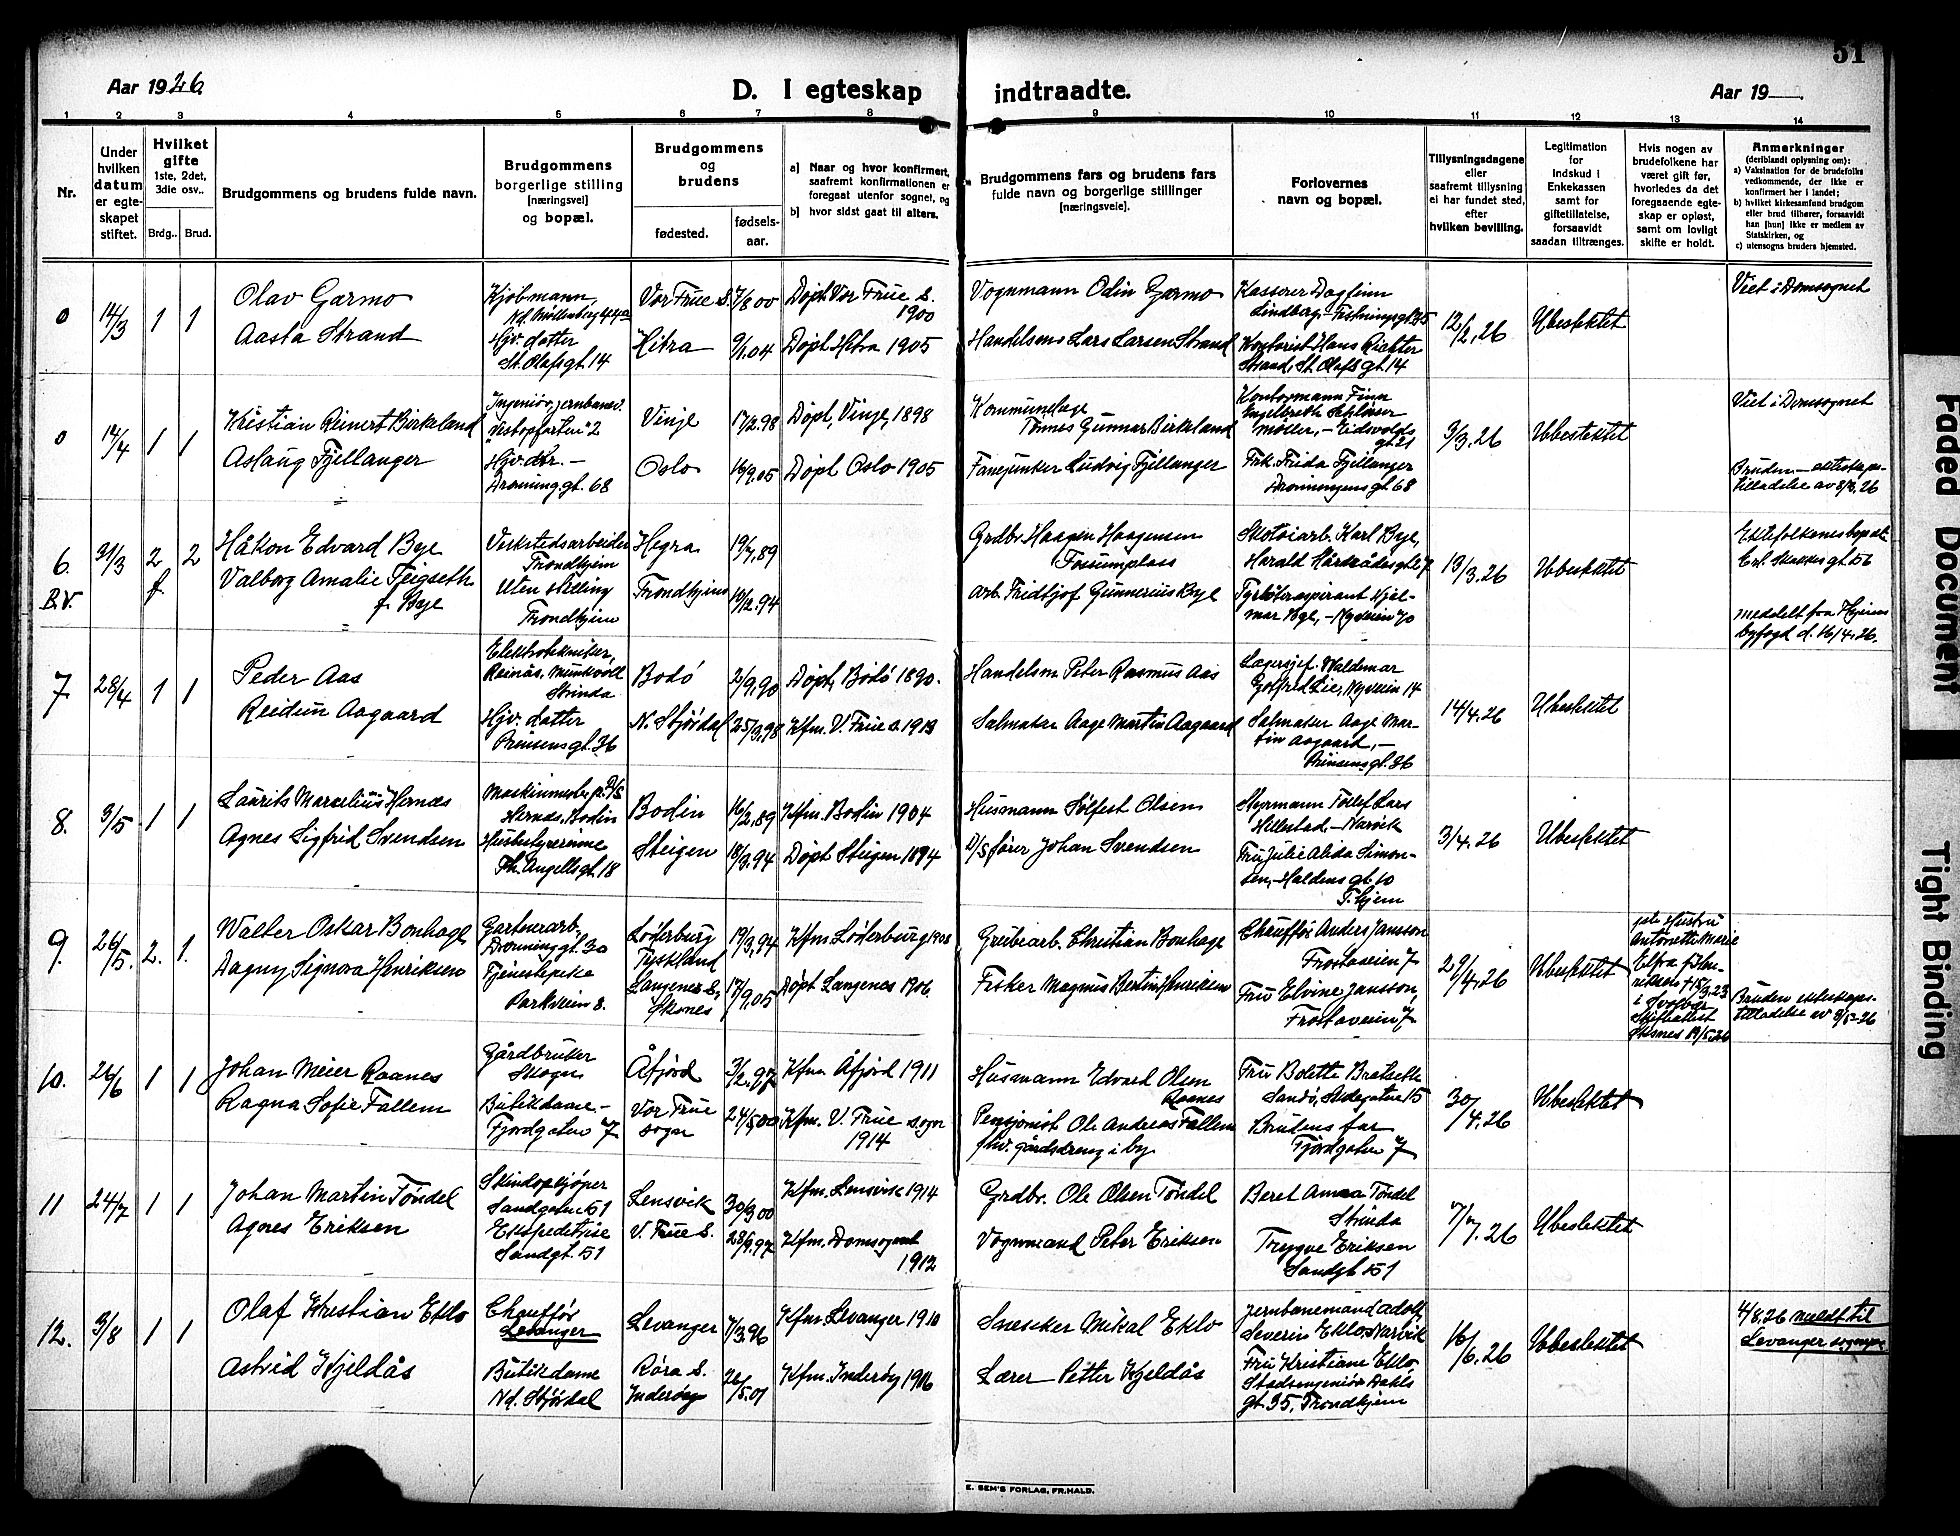 Aar 1926.
D. I egteskap
indtraadte.
Aar 19
51
1 2 3 4 5 6 7 8 9 10 11 12 13 14
Nr.
Under
hvilken
datum
er egte-
skapet
stiftet.
Hvilket
gifte
1ste, 2det,
3die osv..
Brdg.. Brud.
Brudgommens og brudens fulde navn.
Brudgommens
borgerlige stilling
(næringsvei)
og bopæl.
Brudgommens
og
brudens
fødested.
fødsels-
aar.
a) Naar og hvor konfirmert,
saafremt konfirmationen er
foregaat utenfor sognet, og
b) hvor sidst gaat til alters.
Brudgommens fars og brudens fars
fulde navn og borgerlige stillinger
(næringsveie).
Forlovernes
navn og bopæl.
Tillysningsdagene
eller
saafremt tillysning
ei har fundet sted,
efter
hvilken bevilling.
Legitimation
for
Indskud i
Enkekassen
samt for
giftetillatelse,
forsaavidt
saadan tiltrænges.
Hvis nogen av
brudefolkene har
været gift før,
hvorledes da det
foregaaende egte-
skap er opløst,
samt om lovligt
skifte er holdt.
Anmerkninger
(deriblandt oplysning om):
a) Vaksination for de brudefolks
vedkommende, der ikke er
konfirmert her i landet;
b) hvilket kirkesamfund brudgom
eller brud tilhører, forsaavidt
han [hun] ikke er medlem av
Statskirken, og
c) utensogns bruders hjemsted.
0 14/3 1 1
Olav Garmo
Aasta Strand
Kjøbmann,
Nd. Møllenberg 44a
Hjv. datter
St. Olafsgt. 14
Vor Frue S. 7/8 00
Hitra 9/1.04
Døpt Vor Frue S.
1900
Døpt Hitra 1905
Vognmann Odin Garmo
Handelsms Lars Larsen Strand
Kasserer Dagfinn
Lindberg,
Kontorist Hans Richter
Strand, St. Olafs gt. 14
12/2, 26
Ubeslektet
Viet i Domsognet
0 14/4 1 1
Kristian Reinert Birkeland
Aslaug Fjellanger
Ingeniør, jernbanev.
"Vestoforten" 2
Hjv. dtr. –
Dronning.gt. 68
Vinje 17/2.98
Oslo 16/9.05
Døpt, Vinje, 1898
Døpt Oslo 1905
Kommunelæge
Tønnes Gunnar Birkeland
Fanejunker Ludvig Fjellanger
Kontormann Finn
Engelbreth Schlösser
Møller, – Eidsvolds
gt. 21
Frk. Frida Fjellanger
Dronningens gt. 68
9/3.26
Ubeslektet
Viet i Domsognet
Bruden – ekteskaps-
tilladelse av 8/3.26
6.
B.V.
31/3 2 2
f.
Håkon Edvard Bye
Valborg Amalie Teigseth
f. Bye
Verkstedsarbeider
Trondhjem
Uten stilling
Trondhjem
Hegra 19/7.89
Trondhjem 10/12.94
Grdbr. Haagen Haagensen
Fossumplass
Arb. Fridtjof Gunnerius Bye
Skotøiarb. Karl Bye,
Harald Hårdrådes gt. 7
Hjel-
mar Bye, – Nyveien 70
13/3.26
Ubeslektet
Ektefolkenes bopæl:
Erl. Skakkes gt. 56
meddelt fra Hjems
byfogd d. 16/4.26.
7. 28/4 1 1
Peder Aas
Reidun Aagaard
Elektrotekniker,
Reinås, Munkvoll
Strinda
Hjv. datter
Prinsens gt. 36
Bodö 2/9.90
N. Stjördal 25/3.98
Døpt, Bodö 1890.
Kfm. V. Frue s. 1913
Handelsm Peter Rasmus Aas
Salmaker Aage Martin Aagaard
Lagersjef. Waldemar
Gotfred Lie, Nyveien 14
Salmaker Aage Mar-
tin Aagaard, –
Prinsens gt. 36
14/4.26
Ubeslektet
8. 3/5 1 1
Laurits Marcelius Hernæs
Agnes Sigfrid Svendsen
Maskinmester på D/S
Hernæs, Bodin
Husbestyrerinne
Th. Angells gt. 18
Bodin 16/2.89
Steigen 18/3.94
Kfm. Bodin 1904
Døpt Steigen 1894
Husmann Sølfest Olsen
D/S fører Johan Svendsen
Styrmann Tollef Lars
Hillestad, – Narvik
Fru Julie Alida Simon-
sen, – Haldens gt. 10
T.hjem
3/4.26
Ubeslektet
9. 26/5. 2. 1.
Walter Oskar Bonhage
Dagny Signora Henriksen
Gartnerarb.
Dronning.gt. 30
Tjenestepike
Parkveien 8.
Løderburg
Tyskland
19/3.94
Langenes S.,
Øksnes
17/9.05
Kfm. Løderburg 1908
Døpt Langenes 1906.
Grubearb. Christian Bonhage
Fisker Magnus Bertin Henriksen
Chauffør Anders Jansson
Frostaveien 7
Fru Elvine Jansson,
Frostaveien 7
29/4.26
Ubeslektet
1ste Hustru
Antonette Marie
15/3.23
i Svolvær
Skifteattest
Øksnes 19/5.26
Bruden ekteskaps-
tilladelse av 8/5-26
10. 26/6 1 1
Johan Meier Raanes
Ragna Sofie Fallem
Gårdbruker
Skogn
Butikdame –
Fjordgaten 7
Åfjord 3/2.97
Vor Frue
sogn
24/5.00
Kfm Åfjord 1911
Kfm. V. Frue sogn
1914
Husmann Edvard Olsen
Raanes
Pensjonist Ole Andreas Fallem
fhv. gårdsdreng i by
Fru Bolette Bratseth
Sandö, Sidegaten 15
Brudens far
Fjordgaten 7
30/4.26
Ubeslektet
11 24/7 1 1
Johan Martin Töndel
Agnes Eriksen
Skindopkjøper
Sandgaten 51
Ekspeditrise
Sandgt. 51
Lensvik 30/3 00
V. Frue S. 28/9.97
Kfm. Lensvik 1914
Kfm. Domsognet
1912
Grdbr. Ole Olsen Töndel
Vognmand Peter Eriksen
Beret Anna Töndel
Strinda
Trygve Eriksen
Sandgt. 51
7/7.26
Ubeslektet
12. 3/8 1 1
Olaf Kristian Eklo
Astrid Kjeldås
Chauffør
Levanger
Butikdame
Nd. Stjørdal
Levanger 7/3.96
Røra S.
Inderøy
26/5.01
Kfm. Levanger 1910
Kfm. Inderøy 1916
Snekker Mikal Eklo
Lærer – Petter Kjeldås
Jernbanemand Adolf
Severin Eklo, Narvik
Fru Kristiane Eklo,
Stadsingeniør Dahls
gt. 35, Trondhjem
16/6.26
Ubeslektet
4/8.26 meldt til
Levanger sognepr.
E. SEM'S FORLAG, FR.HALD.
Faded Document
Tight Binding